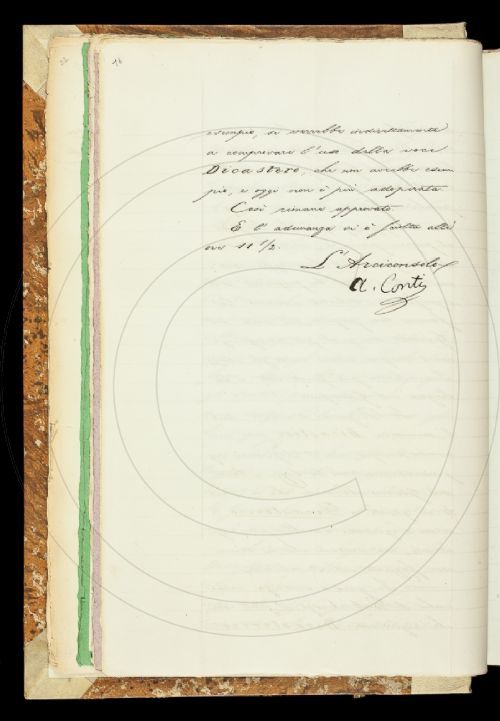 esempio, si verrebbe indirettamente
a comprovare l'uso della voce
Dicastero, che non avrebbe esem
pio, e oggi non è più adoperata.
Così rimane approvato.
E l'adunanza si è sciolta alle
ore 11 1/2.
L'Arciconsolo
A. Conti